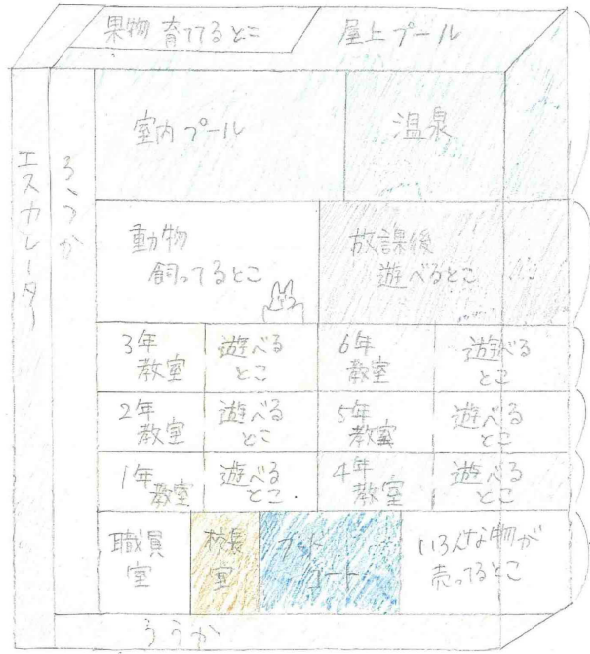 果物 育ててるとこ
屋上プール
エスカレーター
ろうか
室内プール
温泉
動物
飼ってるとこ
放課後
遊べるとこ
3年
教室
遊べる
とこ
6年
教室
遊べる
とこ
2年
教室
遊べる
とこ
5年
教室
遊べる
とこ
1年
教室
遊べる
とこ
4年
教室
遊べる
とこ
職員
室
校長
室
フード
コート
いろんな物が
売ってるとこ
ろうか